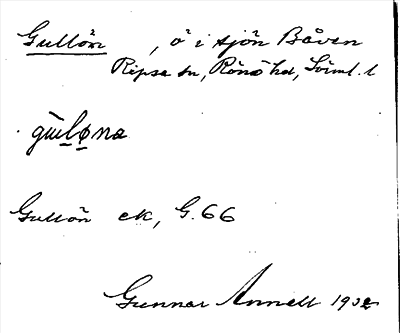 Gullön , ö i sjön Båven
Ripsa sn, Rönö hd, Söml. l
gūlǫna
Gullön ek, G.66
Gunnar Annell 1932